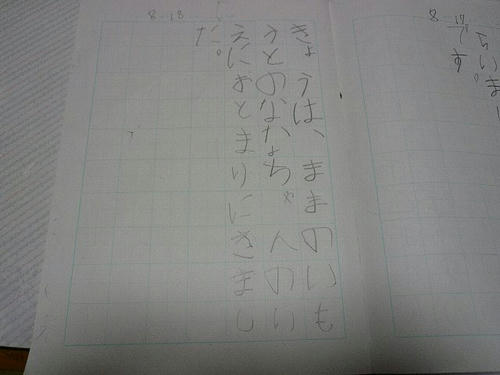 8-18
きょうは、ままのいも
うとのなかよちゃんのい
えにおとまりにきまし
た。
8
17
です。